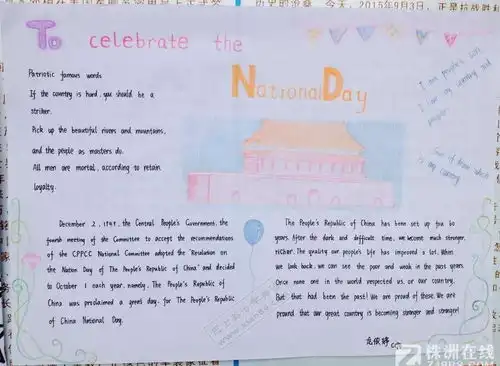 历史的沧桑。今天，2015年9月3日，正是抗战胜利
To celebrate the
National Day
Patriotic famous words
If the country is hard, you should be a
striker.
Pick up the beautiful rivers and mountains,
and the people as masters do.
All men are mortal, according to retain
loyalty.
I am people's son
I love my country and
people!
is my country
December 2, 1949, the Central People's Government, the
fourth meeting of the Committee to accept the recommendations
of the CPPCC National Committee adopted the "Resolution on
the Nation Day of The People's Republic of China" and decided
to October 1 each year, namely, The People's Republic of
China was proclaimed a great day, for The People's Republic
of China National Day.
The People's Republic of China has been set up for 60
years. After the dark and difficult time, we become much stronger,
richer. The quality our people's life has improved a lot. When
we look back, we can see the poor and weak in the past years.
Once none one in the world respected us, or our country.
But that had been the past! We are proud of these. We are
proud that our great country is becoming stronger and stronger!
株洲在线